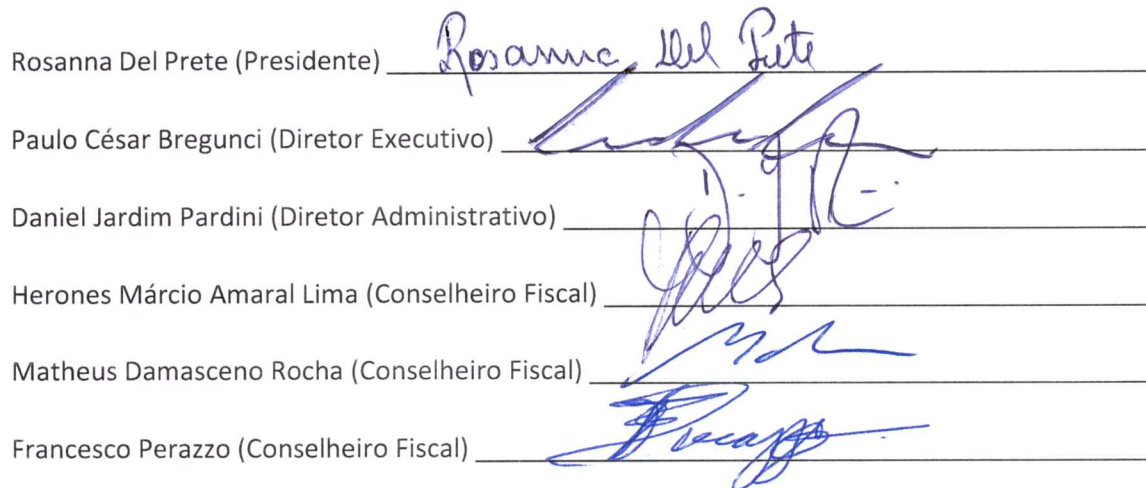 Rosanna Del Prete (Presidente) Rosanna Del Prete
Paulo César Bregunci (Diretor Executivo)
Daniel Jardim Pardini (Diretor Administrativo)
Herones Márcio Amaral Lima (Conselheiro Fiscal)
Matheus Damasceno Rocha (Conselheiro Fiscal)
Francesco Perazzo (Conselheiro Fiscal)